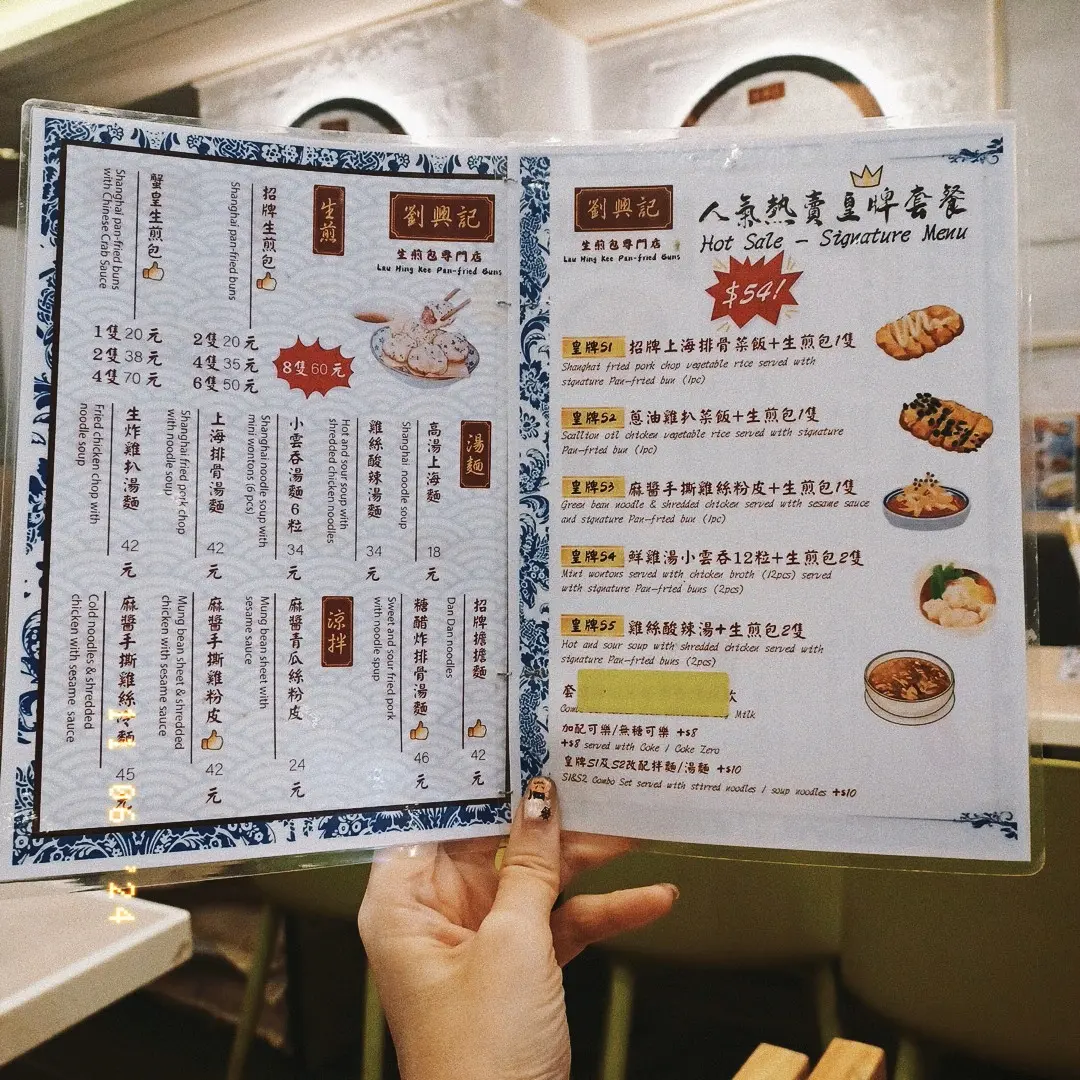 劉興記
生煎包專門店
Lau Hing Kee Pan-fried Buns
生煎
招牌生煎包
Shanghai pan-fried buns
2隻20元
4隻35元
6隻50元
8隻60元
蟹皇生煎包
Shanghai pan-fried buns
with Chinese Crab Sauce
1隻20元
2隻38元
4隻70元
湯麵
高湯上海麵
Shanghai noodle soup
18元
雞絲酸辣湯麵
Hot and sour soup with
shredded chicken noodles
34元
小雲吞湯麵6粒
Shanghai noodle soup with
mini wontons (6 pcs)
34元
上海排骨湯麵
Shanghai fried pork chop
with noodle soup
42元
生炸雞扒湯麵
Fried chicken chop with
noodle soup
42元
招牌擔擔麵
Dan Dan noodles
42元
糖醋炸排骨湯麵
Sweet and sour fried pork
with noodle soup
46元
涼拌
麻醬青瓜絲粉皮
Mung bean sheet with
sesame sauce
24元
麻醬手撕雞粉皮
Mung bean sheet & shredded
chicken with sesame sauce
42元
麻醬手撕雞絲冷麵
Cold noodles & shredded
chicken with sesame sauce
45元
劉興記
生煎包專門店
Lau Hing Kee Pan-fried Buns
人氣熱賣皇牌套餐
Hot Sale - Signature Menu
$54!
皇牌S1 招牌上海排骨菜飯+生煎包1隻
Shanghai fried pork chop vegetable rice served with
signature Pan-fried bun (1pc)
皇牌S2 蔥油雞扒菜飯+生煎包1隻
Scallion oil chicken vegetable rice served with signature
Pan-fried bun (1pc)
皇牌S3 麻醬手撕雞絲粉皮+生煎包1隻
Green bean noodle & shredded chicken served with sesame sauce
and signature Pan-fried bun (1pc)
皇牌S4 鮮雞湯小雲吞12粒+生煎包2隻
Mini wontons served with chicken broth (12pcs) served
with signature Pan-fried buns (2pcs)
皇牌S5 雞絲酸辣湯+生煎包2隻
Hot and sour soup with shredded chicken served with
signature Pan-fried buns (2pcs)
套
Milk
加配可樂/無糖可樂 +$8
+$8 served with Coke / Coke Zero
皇牌S1及S2改配拌麵/湯麵 +$10
S1&S2 Combo Set served with stirred noodles / soup noodles +$10